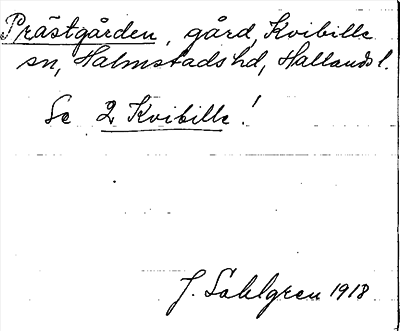 Prästgården, gård, Kvibille
sn, Halmstads hd, Hallands l.
Se 2 Kvibille!
J. Sahlgren 1918